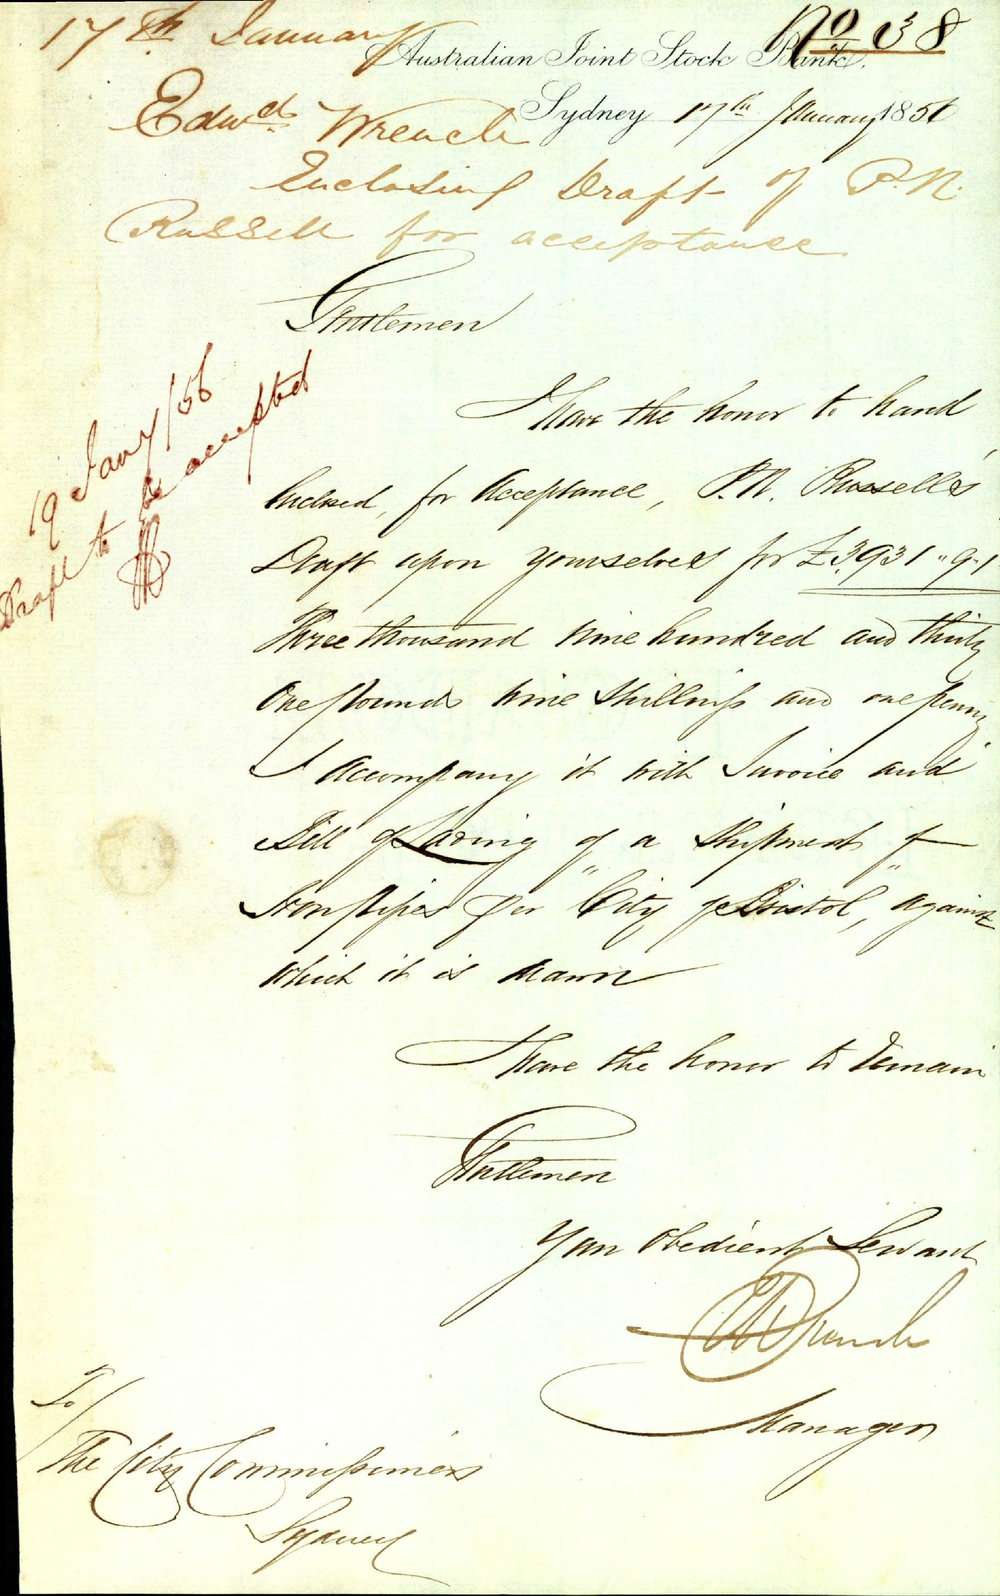 17th January
No 38
Australian Joint Stock Bank.
Sydney 17th January 1856
Edwd Wrench
Enclosing Draft of P.N.
Russell for acceptance
Gentlemen
I have the honor to hand
inclosed, for Acceptance, P.N. Russell's
Draft upon yourselves for £3,931"9"1
Three thousand nine hundred and thirty
One pounds nine Shillings and one penny
I accompany it with Invoice and
Bill of Lading of a Shipment of
Iron pipes per "City of Bristol", against
which it is drawn
I have the honor to remain
Gentlemen
Your Obedient Servant
Manager
19 Jany/56
Draft to be accepted
To/
The City Commissioners
Sydney